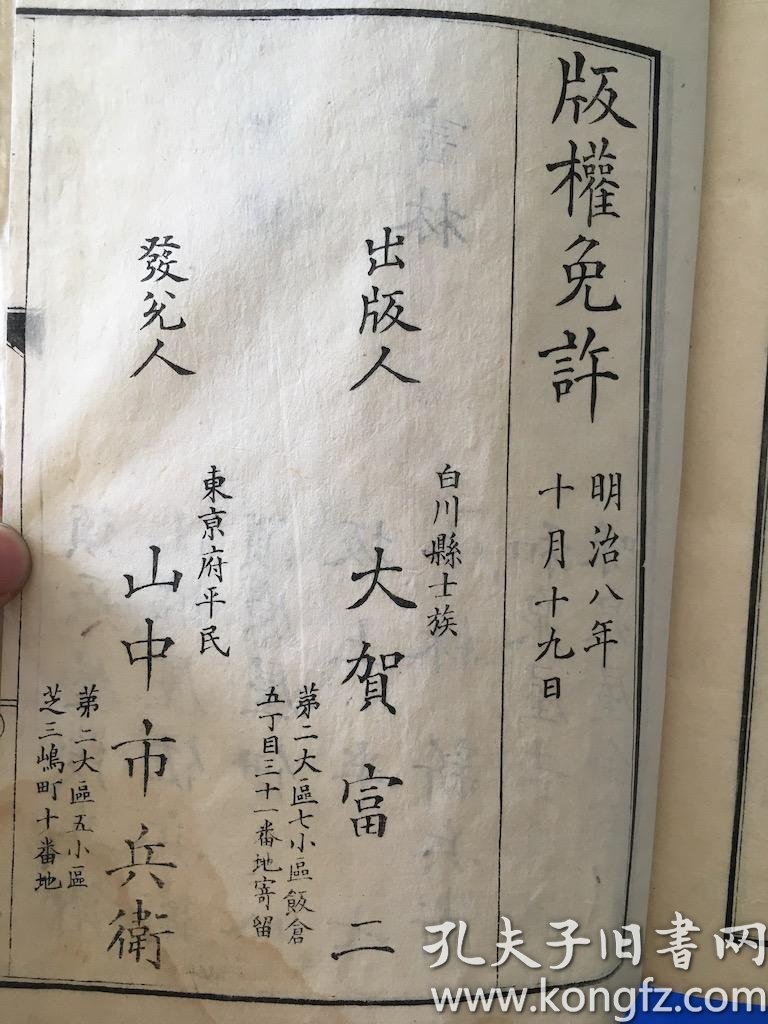 版權免許
明治八年
十月十九日
出版人
白川縣士族
大賀富二
苐二大區七小區飯倉
五丁目三十一番地寄留
發兊人
東亰府平民
山中市兵衛
苐二大區五小區
芝三嶋町十番地
孔夫子旧书网
www.kongfz.com